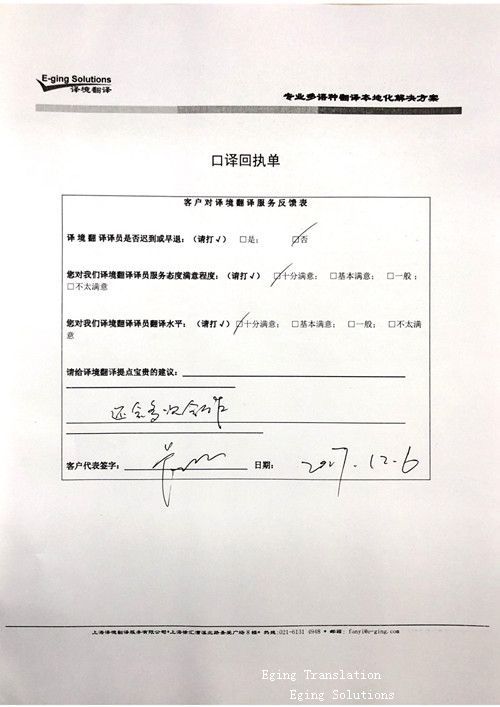 E-ging Solutions
译境翻译
专业多语种翻译本地化解决方案
口译回执单
客户对译境翻译服务反馈表
译境翻译译员是否迟到或早退：（请打√） □是； □否
您对我们译境翻译译员服务态度满意程度：（请打√） □十分满意； □基本满意； □一般；
□不太满意
您对我们译境翻译译员翻译水平：（请打√） □十分满意； □基本满意； □一般； □不太满
意
请给译境翻译提点宝贵的建议：
还会多次合作
客户代表签字： 日期： 2017.12.6
上海译境翻译服务有限公司•上海徐汇漕溪北路 广场8楼• 热线:021-6131 4948 • 邮箱: fanyi@e-ging.com
Eging Translation
Eging Solutions